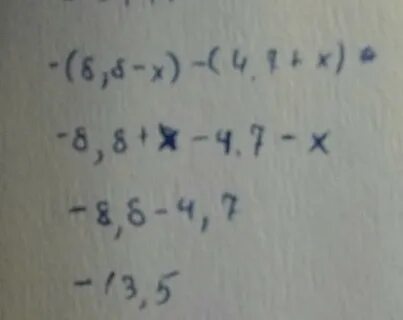 -(8,8-x)-(4.7+x)
-8,8+x-4.7-x
-8,8-4,7
-13,5